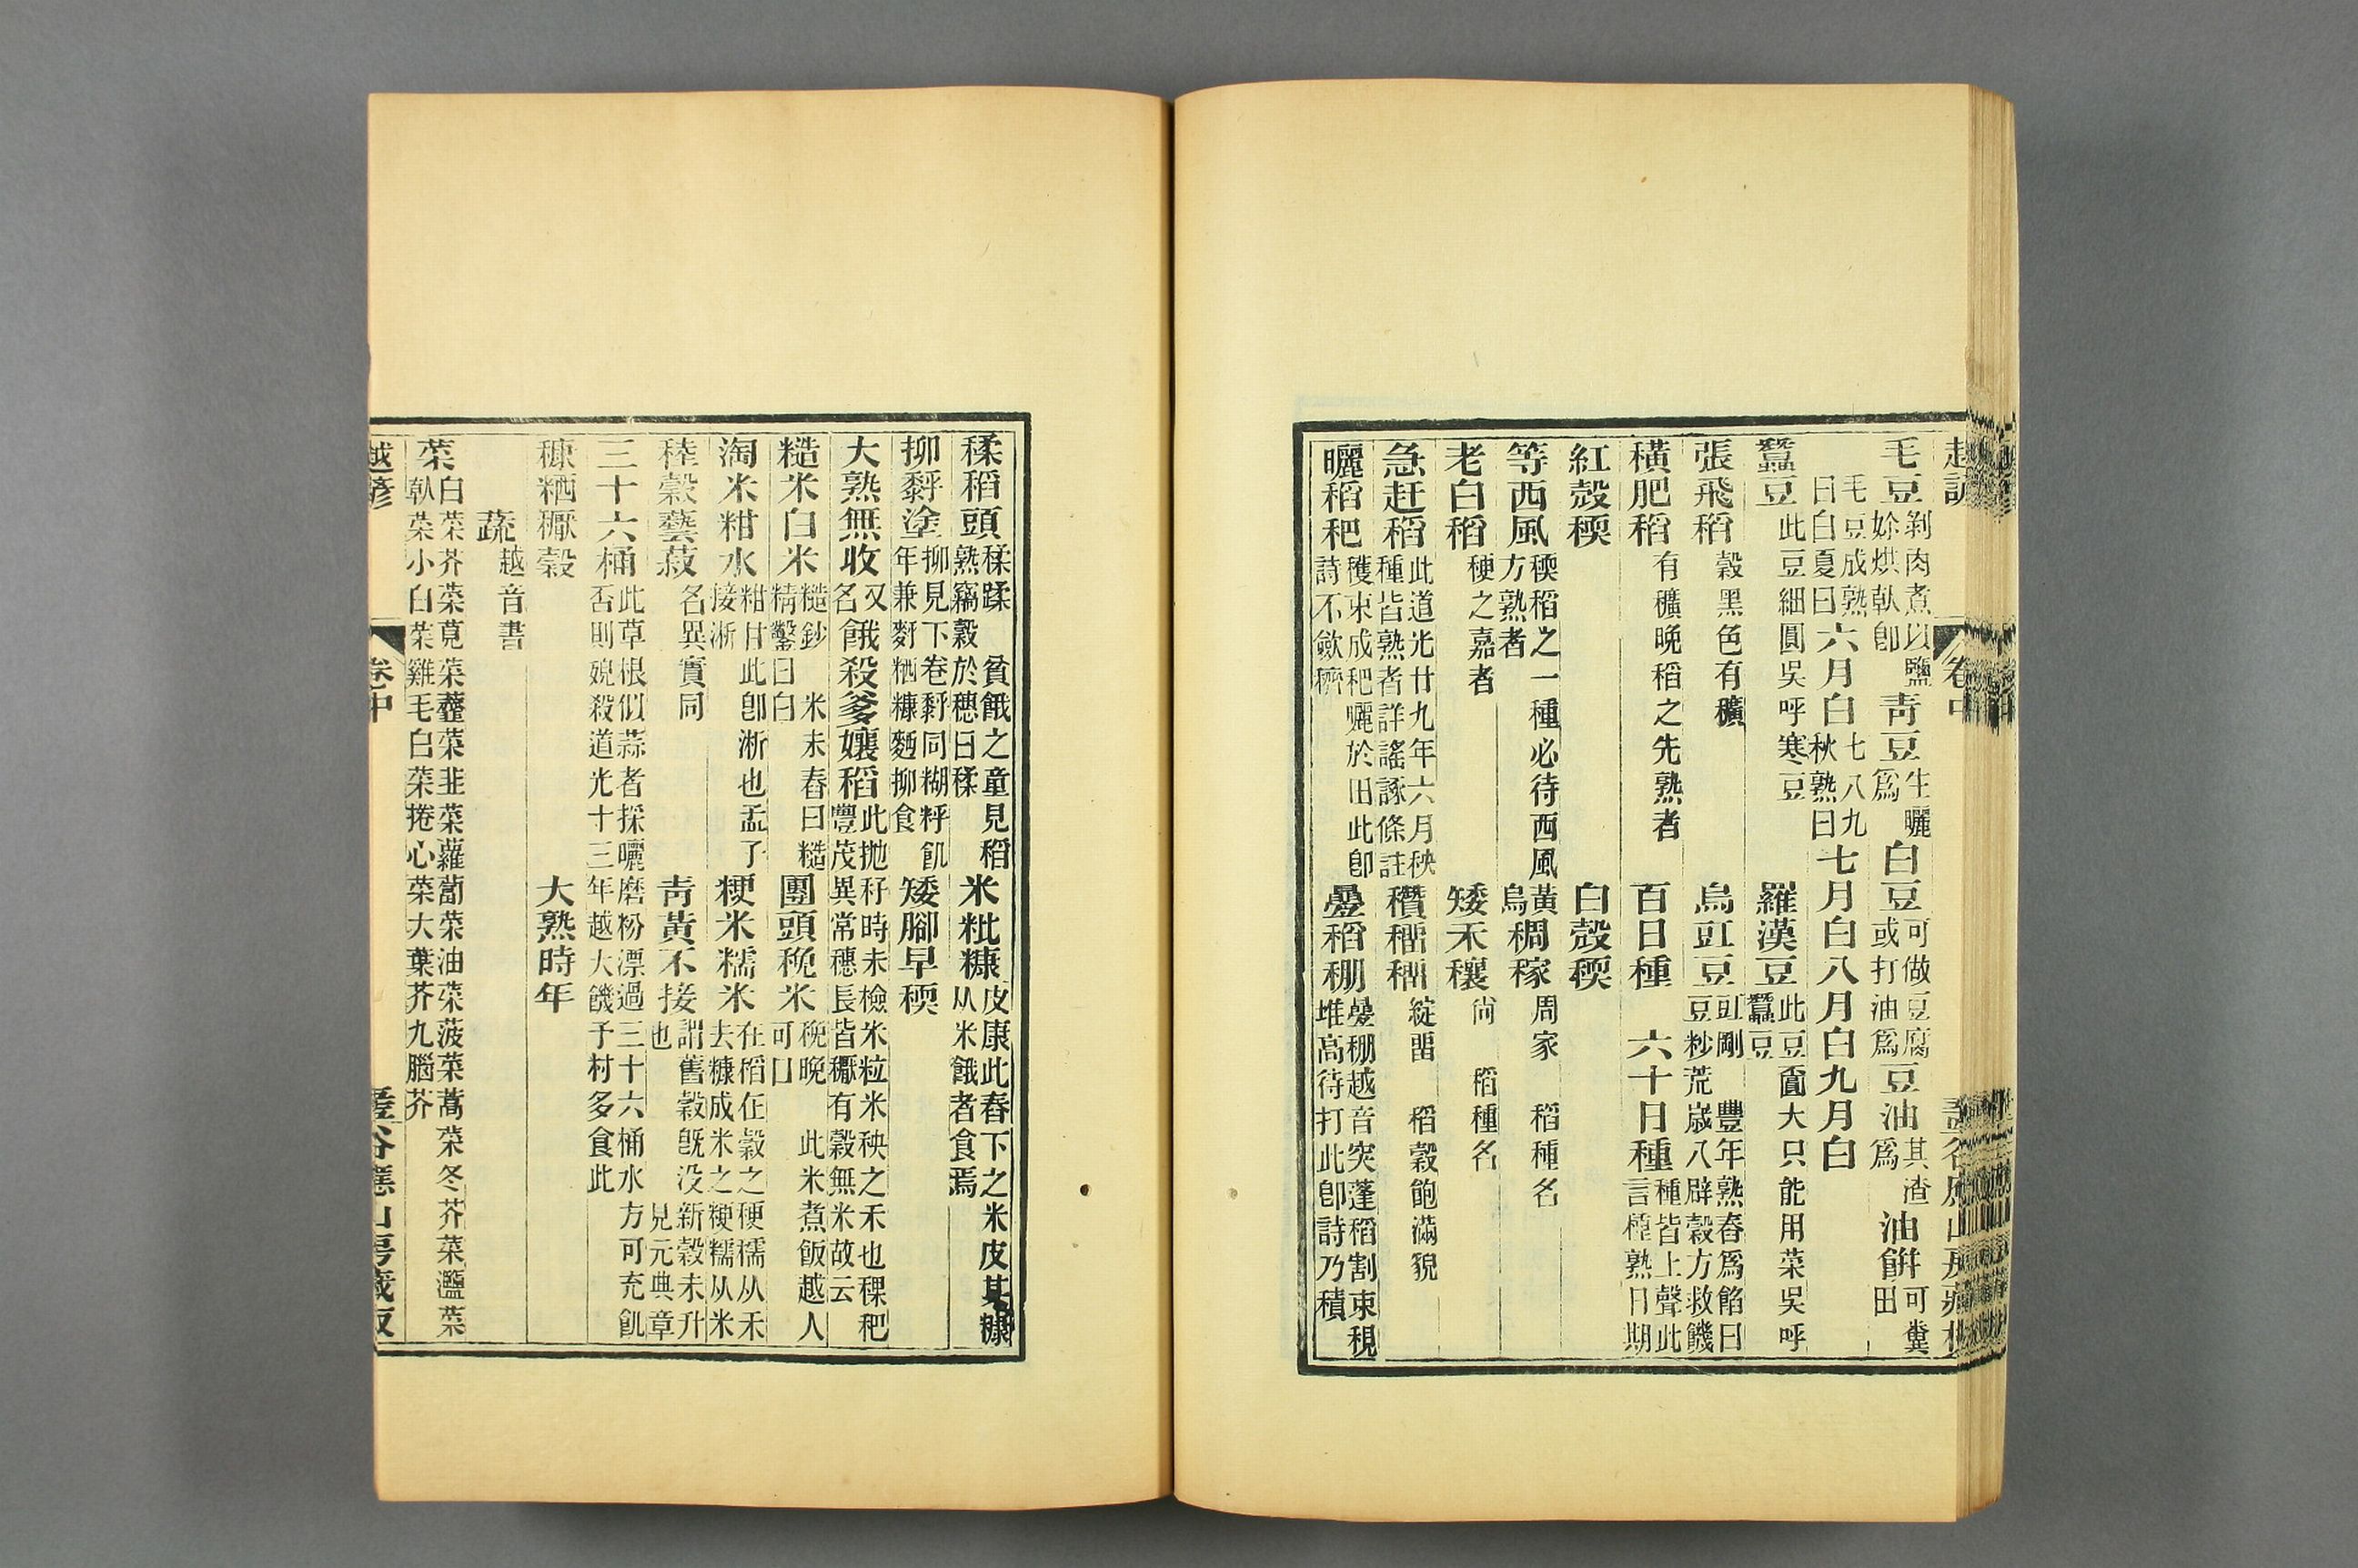 毛豆剝肉煮以鹽妳烘𠆸卽靑豆生曬爲白豆可做豆腐或打油爲豆油其渣爲油餠可糞田
毛豆成熟曰白夏曰六月白七八九秋熟曰七月白八月白九月白
蠶豆此豆細圓吳呼寒豆 羅漢豆此豆匾大只能用菜吳呼蠶豆
張飛稻穀黑色有穬 烏豇豆豇剛豆炒豐年熟舂爲餡曰荒歲八辟穀方救饑
橫肥稻有穬晩稻之先熟者 百日種 六十日種種皆上聲此言種熟日期
紅殼稬 白殼稬
等西風稬稻之一種必待西風方熟者 黃烏稠稼周家 稻種名
老白稻稉之嘉者 矮禾穰尙 稻種名
急赶稻此道光廿九年六月秧種皆熟者詳謠諑條註 稻穀飽滿貌
曬稻䄫穫束成䄫曬於田此卽詩不斂穧 疊稻棚疊棚越音突蓬稻割束稛堆高待打此卽詩乃積
稻頭貧餓之童見稻熟竊穀於穗曰 米粃糠皮康此舂下之米皮其糠从米餓者食焉
塗下卷同糊年兼麩粞糠麪食 矮腳早稬
大熟無收又名餓殺爹孃稻此拋秄時未檢米粒米秧之禾也稞䄫豐茂異常穗長皆有穀無米故云
糙米白米糙鈔精鑿曰白米未舂曰糙 團頭䅈米䅈晚可口此米煮飯越人
淘米泔水泔甘此卽淅也孟了接淅 粳米糯米在稻在穀之稉稬从禾去糠成米之粳糯从米
稑穀藝菽名異實同 靑黃不接謂舊穀旣没新穀未升也見元典章
三十六桶此草根似蒜者採曬磨粉漂過三十六桶水方可充飢否則毒殺道光十三年越大饑予村多食此
糠粞穀 大熟時年
蔬越音書
菜白菜芥菜莧菜薹菜韭菜蘿蔔菜油菜菠菜蒿菜冬芥菜菜菜小白菜雞毛白菜捲心菜大葉芥九腦芥
越諺 卷中 谷應山房藏板